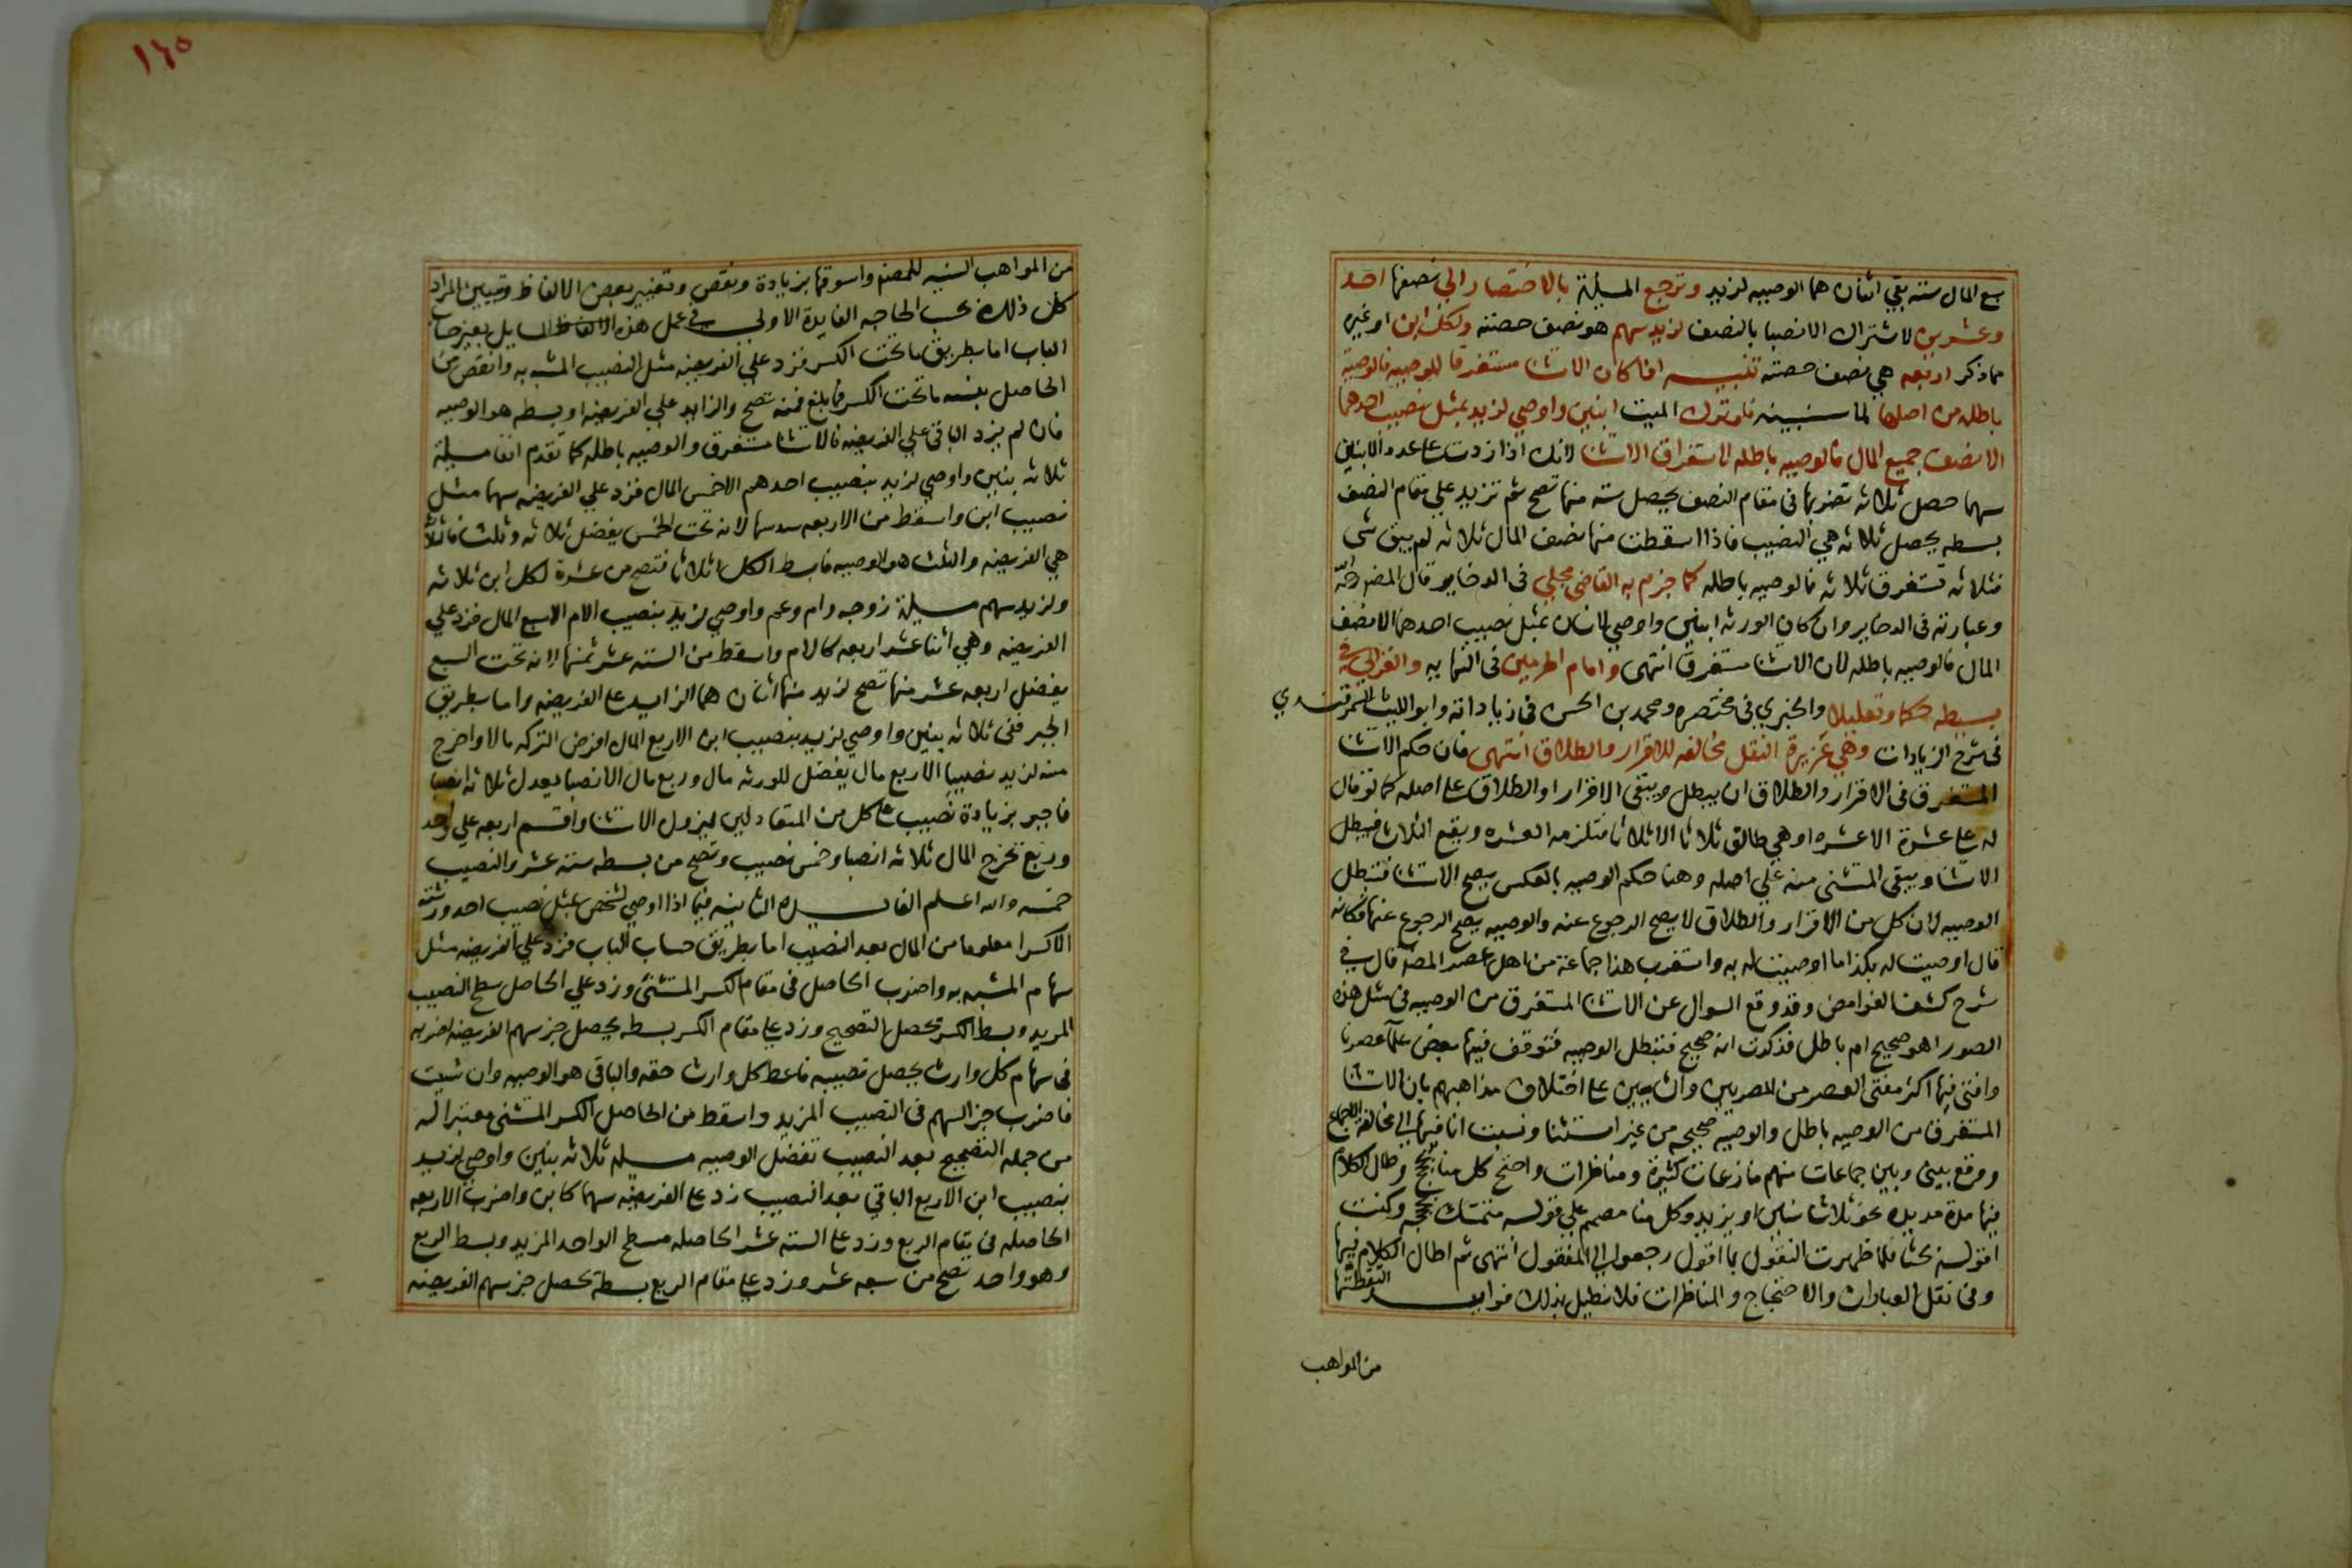 بع المال سته بقي اثنان هما الوصيه لزيد وترجع المسيلة بالاختصار الي نصفها احد
وعشرين لاشتراك الانصبا بالنصف لزيد سهم هو نصف حصته ولكل ابن او غيره
مما ذكر اربعه هي نصف حصته تنبيه اذا كان الاستثنا مستغرقا للوصيه فالوصية
باطله من اصلها لما سنبينه فلو ترك الميت ابنين واوصي لزيد بمثل نصيب احدهما
الا نصف جميع المال فالوصيه باطله لاستغراق الاستثنا لانك اذا زدت علي عدد الابنين
سهما حصل ثلاثه تضربها في مقام النصف يحصل سته منها تصح ثم تزيد علي مقام النصف
بسطه يحصل ثلاثه هي النصيب فاذا اسقطت منها نصف المال ثلاثه لم يبق شي
فثلاثه تستغرق ثلاثه فالوصيه باطله كما جزم به القاضي مجلي في الدخاير قال المصنف
وعبارته في الدخاير وان كان الورثه ابنين واوصي لانسان بمثل نصيب احدهما الا نصف
المال فالوصيه باطله لان الاستثنا مستغرق انتهي وامام الحرمين في النهايه والغزالي في
بسيطه حكما وتعليلا والخبري في مختصره ومحمد بن الحسن في زياداته وابو الليث السمرقندي
في شرح الزيادات وهي عزيزة النقل مخالفه للاقرار والطلاق انتهي فان حكم الاستثنا
المستغرق في الاقرار والطلاق ان يبطل ويبقي الاقرار او الطلاق علي اصله كما لو قال
له علي عشرة الا عشره او هي طالق ثلاثا الا ثلاثا فتلزمه العشره ويقع الثلاث فيبطل
الاستثنا ويبقي المستثني منه علي اصله وهنا حكم الوصيه بالعكس يصح الاستثنا فتبطل
الوصيه لان كل من الاقرار والطلاق لا يصح الرجوع عنه والوصيه يصح الرجوع عنها فكانه
قال اوصيت له بكذا ما اوصيت له به واستغرب هذا جماعة من اهل عصر المصنف قال في
شرح كشف الغوامض وقد وقع السوال عن الاستثنا المستغرق من الوصيه في مثل هذه
الصور اهو صحيح ام باطل فذكرت انه صحيح فتبطل الوصيه فتوقف فيها بعض علما عصرنا
وافتي فيها اكثر مفتي العصر من المصريين والشاميين علي اختلاف مذاهبهم بان الاستثنا
المستغرق من الوصيه باطل والوصيه صحيحه من غير استثنا ونسبت انا فيها الي مخالفة الاجماع
ووقع بيني وبين جماعات منهم منازعات كثيرة ومناظرات واحتج كل منا بحجج وطال الكلام
فيها مدة مديده نحو ثلاث سنين او يزيد وكل منا مصمم علي قوله متمسك بحجه وكنت
اقوله بحثا فلما ظهرت النقول بما اقول رجعوا الي المنقول انتهي ثم اطال الكلام فيها
وفي نقل العبارات والاحتجاج والمناظرات فلا نطيل بذلك فوايد التقطتها
من المواهب
١٤٥
من المواهب السنيه للمصنف واسوقها بزيادة ونقص وتغيير بعض الالفاظ وتبيين المراد
كل ذلك بحسب الحاجه الفايدة الاولي في عمل هذه المسايل بغير حساب
الباب اما بطريق ما تحت الكسر فزد علي الفريضه مثل النصيب المشبه به وانقص من
الحاصل بنسبة ما تحت الكسر فما بلغ فمنه تصح والزايد علي الفريضه او بسطه هو الوصيه
فان لم يزد الباقي علي الفريضه فالاستثنا مستغرق والوصيه باطله كما تقدم انفا مسيلة
ثلاثه بنين واوصي لزيد بنصيب احدهم الا خمس المال فزد علي الفريضه سهما مثل
نصيب ابن واسقط من الاربعه سدسها لانه تحت الخمس يفضل ثلاثه وثلث فالثلاثة
هي الفريضه والثلث هو الوصيه فابسط الكل اثلاثا فتصح من عشرة لكل ابن ثلاثه
ولزيد سهم مسيلة زوجه وام وعم واوصي لزيد بنصيب الام الا سبع المال فزد علي
الفريضه وهي اثنا عشر اربعه كالام واسقط من السته عشر ثمنها لانه تحت السبع
يفضل اربعه عشر منها تصح لزيد منها اثنان هما الزايد علي الفريضه واما بطريق
الجبر ففي ثلاثه بنين واوصي لزيد بنصيب ابن الا ربع المال افرض التركه مالا واخرج
منه لزيد نصيبا الا ربع مال يفضل للورثه مال وربع مال الا نصيبا يعدل ثلاثه انصبا
فاجبر بزيادة نصيب علي كل من المتعادلين ليزول الاستثنا واقسم اربعه علي واحد
وربع تخرج المال ثلاثه انصبا وخمس نصيب وتصح من بسطه سته عشر والنصيب
خمسه والله اعلم الفايده الثانيه فيما اذا اوصي لشخص بمثل نصيب احد ورثته
الا كسرا معلوما من المال بعد النصيب اما بطريق حساب الباب فزد علي الفريضه مثل
سهام المشبه به واضرب الحاصل في مقام الكسر المستثني وزد علي الحاصل سطح النصيب
المزيد وبسط الكسر تحصل التصحيح وزد علي مقام الكسر بسطه يحصل جز سهم الفريضه اضربه
في سهام كل وارث يحصل نصيبه فاعط كل وارث حقه والباقي هو الوصيه وان شيت
فاضرب جز السهم في النصيب المزيد واسقط من الحاصل الكسر المستثني معتبرا له
من جملة التصحيح بعد النصيب تفضل الوصيه مسيله ثلاثه بنين واوصي لزيد
بنصيب ابن الا ربع الباقي بعد النصيب زد علي الفريضه سهما كابن واضرب الاربعه
الحاصله في مقام الربع وزد علي السته عشر الحاصله مسطح الواحد المزيد وبسط الربع
وهو واحد تصح من سبعه عشر وزد علي مقام الربع بسطه تحصل جز سهم الفريضه